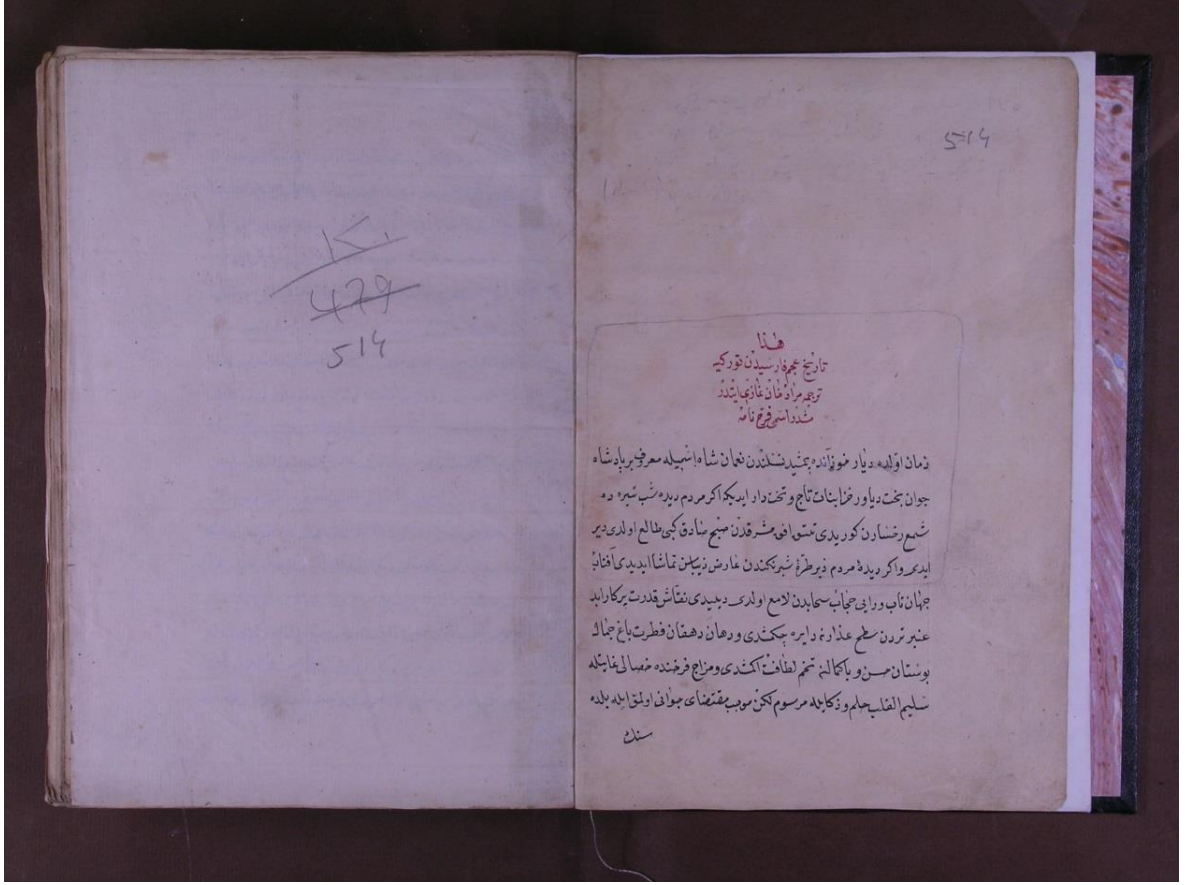 514
هذا
تاریخ عجم فارسیدن تورکیه
ترجمه مراد خان غازی ایتدر
اسمی فرخ نامه
زمان اولده دیار خوزانده جمشید نسلندن نعمان شاه اسمیله معروف بر پادشاه
جوان بخت دیاور خزاینات تاج و تخت دار ایدیکه اکر مردم دیده شب تیره ده
شمع رخسارن کوریدی تتق افق مشرقدن صبح صادق کبی طالع اولدی دیر
ایدی واکر دیدۀ مردم زیر طرۀ شبرنکندن عارض زیباسن تماشا ایدیدی آفتاب
جهان تاب ورایی حجاب سحابدن لامع اولدی دییدی نقاش قدرت پرکار ایله
عنبر تردن سطح عذارنه دایره چکمشدی ودهان دهقان فطرت باغ جمال
بوستان حسن و باکمالنه تخم لطافت اکمشدی ومزاج فرخنده خصالی غایتله
سلیم القلب حلم وذکایله مرسوم لکن موجب مقتضای جوانی اولمق ایله بلده
سنك
479
514